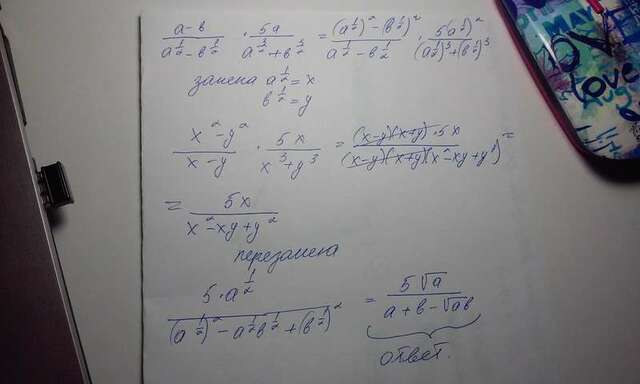 (a-b)/(a^{1/2}-b^{1/2}) · 5a/(a^{3/2}+b^{3/2}) = ((a^{1/2})^2-(b^{1/2})^2)/(a^{1/2}-b^{1/2}) · 5(a^{1/2})^2/((a^{1/2})^3+(b^{1/2})^3)
замена a^{1/2}=x
b^{1/2}=y
(x^2-y^2)/(x-y) · 5x/(x^3+y^3) = ((x-y)(x+y)·5x)/((x-y)(x+y)(x^2-xy+y^2)) =
= 5x/(x^2-xy+y^2)
перезамена
5·a^{1/2}/((a^{1/2})^2-a^{1/2}b^{1/2}+(b^{1/2})^2) = 5√a/(a+b-√ab)
ответ.
MAY
Love